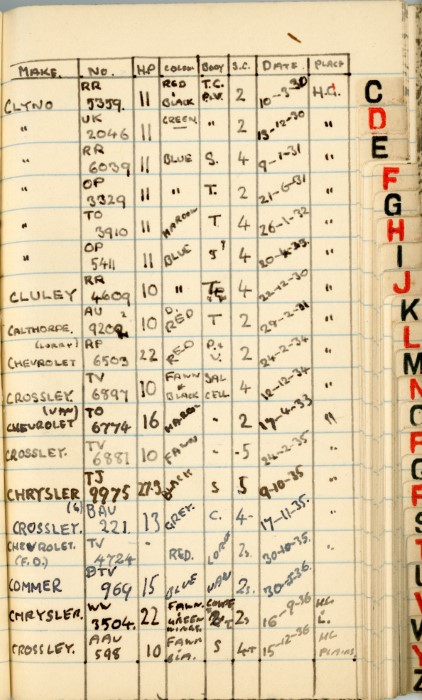 MAKE. NO. H.P COLOUR BODY S.C. DATE. PLACE
CLYNO RR 5359. 11 RED & BLACK T.C. P.V. 2 10-3-30 H.G.
" UK 2046 11 GREEN " 2 13-12-30 "
" RR 6039 11 BLUE S. 4 9-1-31 "
" OP 3329 11 " T. 2 21-6-31 "
" TO 3910 11 MAROON T 4 26-1-32 "
" OP 5411 11 BLUE S? 4 20-4-33. "
CLULEY RR 4609 10 " 4 22-12-30 "
CALTHORPE. AU 9202 10 D. RED T 2 29-2-31 "
(LORRY) CHEVROLET RP 6503 22 RED 2 24-2-34 "
CROSSLEY. TV 6897 10 FAWN & BLACK SAL CELL 4 12-12-34 "
(VAN) CHEVROLET TO 6774 16 MAROON " 2 19-4-33 "
CROSSLEY. TV 6881 10 FAWN " 5 24-2-35 "
CHRYSLER TJ 9975 27-3 BLACK S 5 9-10-35 "
CROSSLEY. (6) BAU 221. 13 GREY. C. 4- 17-11-35. "
CHEVROLET. (F.O.) TV 4724 - RED. LORRY 2s 30-10-35. "
COMMER BTV 969 15 BLUE VAN 2s. 30-5-36. "
CHRYSLER. WW 3504. 22 FAWN. GREEN WINGS. COUPE 2s 16-9-36 HG L.
CROSSLEY. AAU 598 10 FAWN BLA. S 4 15-12-36 HG PLAINS
C
D
E
F
G
H
I
J
K
L
M
N
O
P
Q
R
S
T
U
V
W
Y
Z